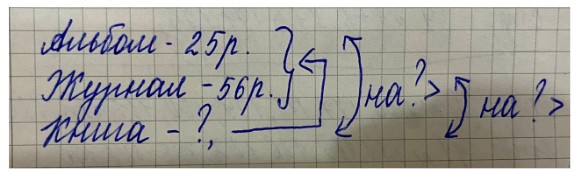 Альбом - 25р.
Журнал - 56р. на?> на?>
Книга - ?,